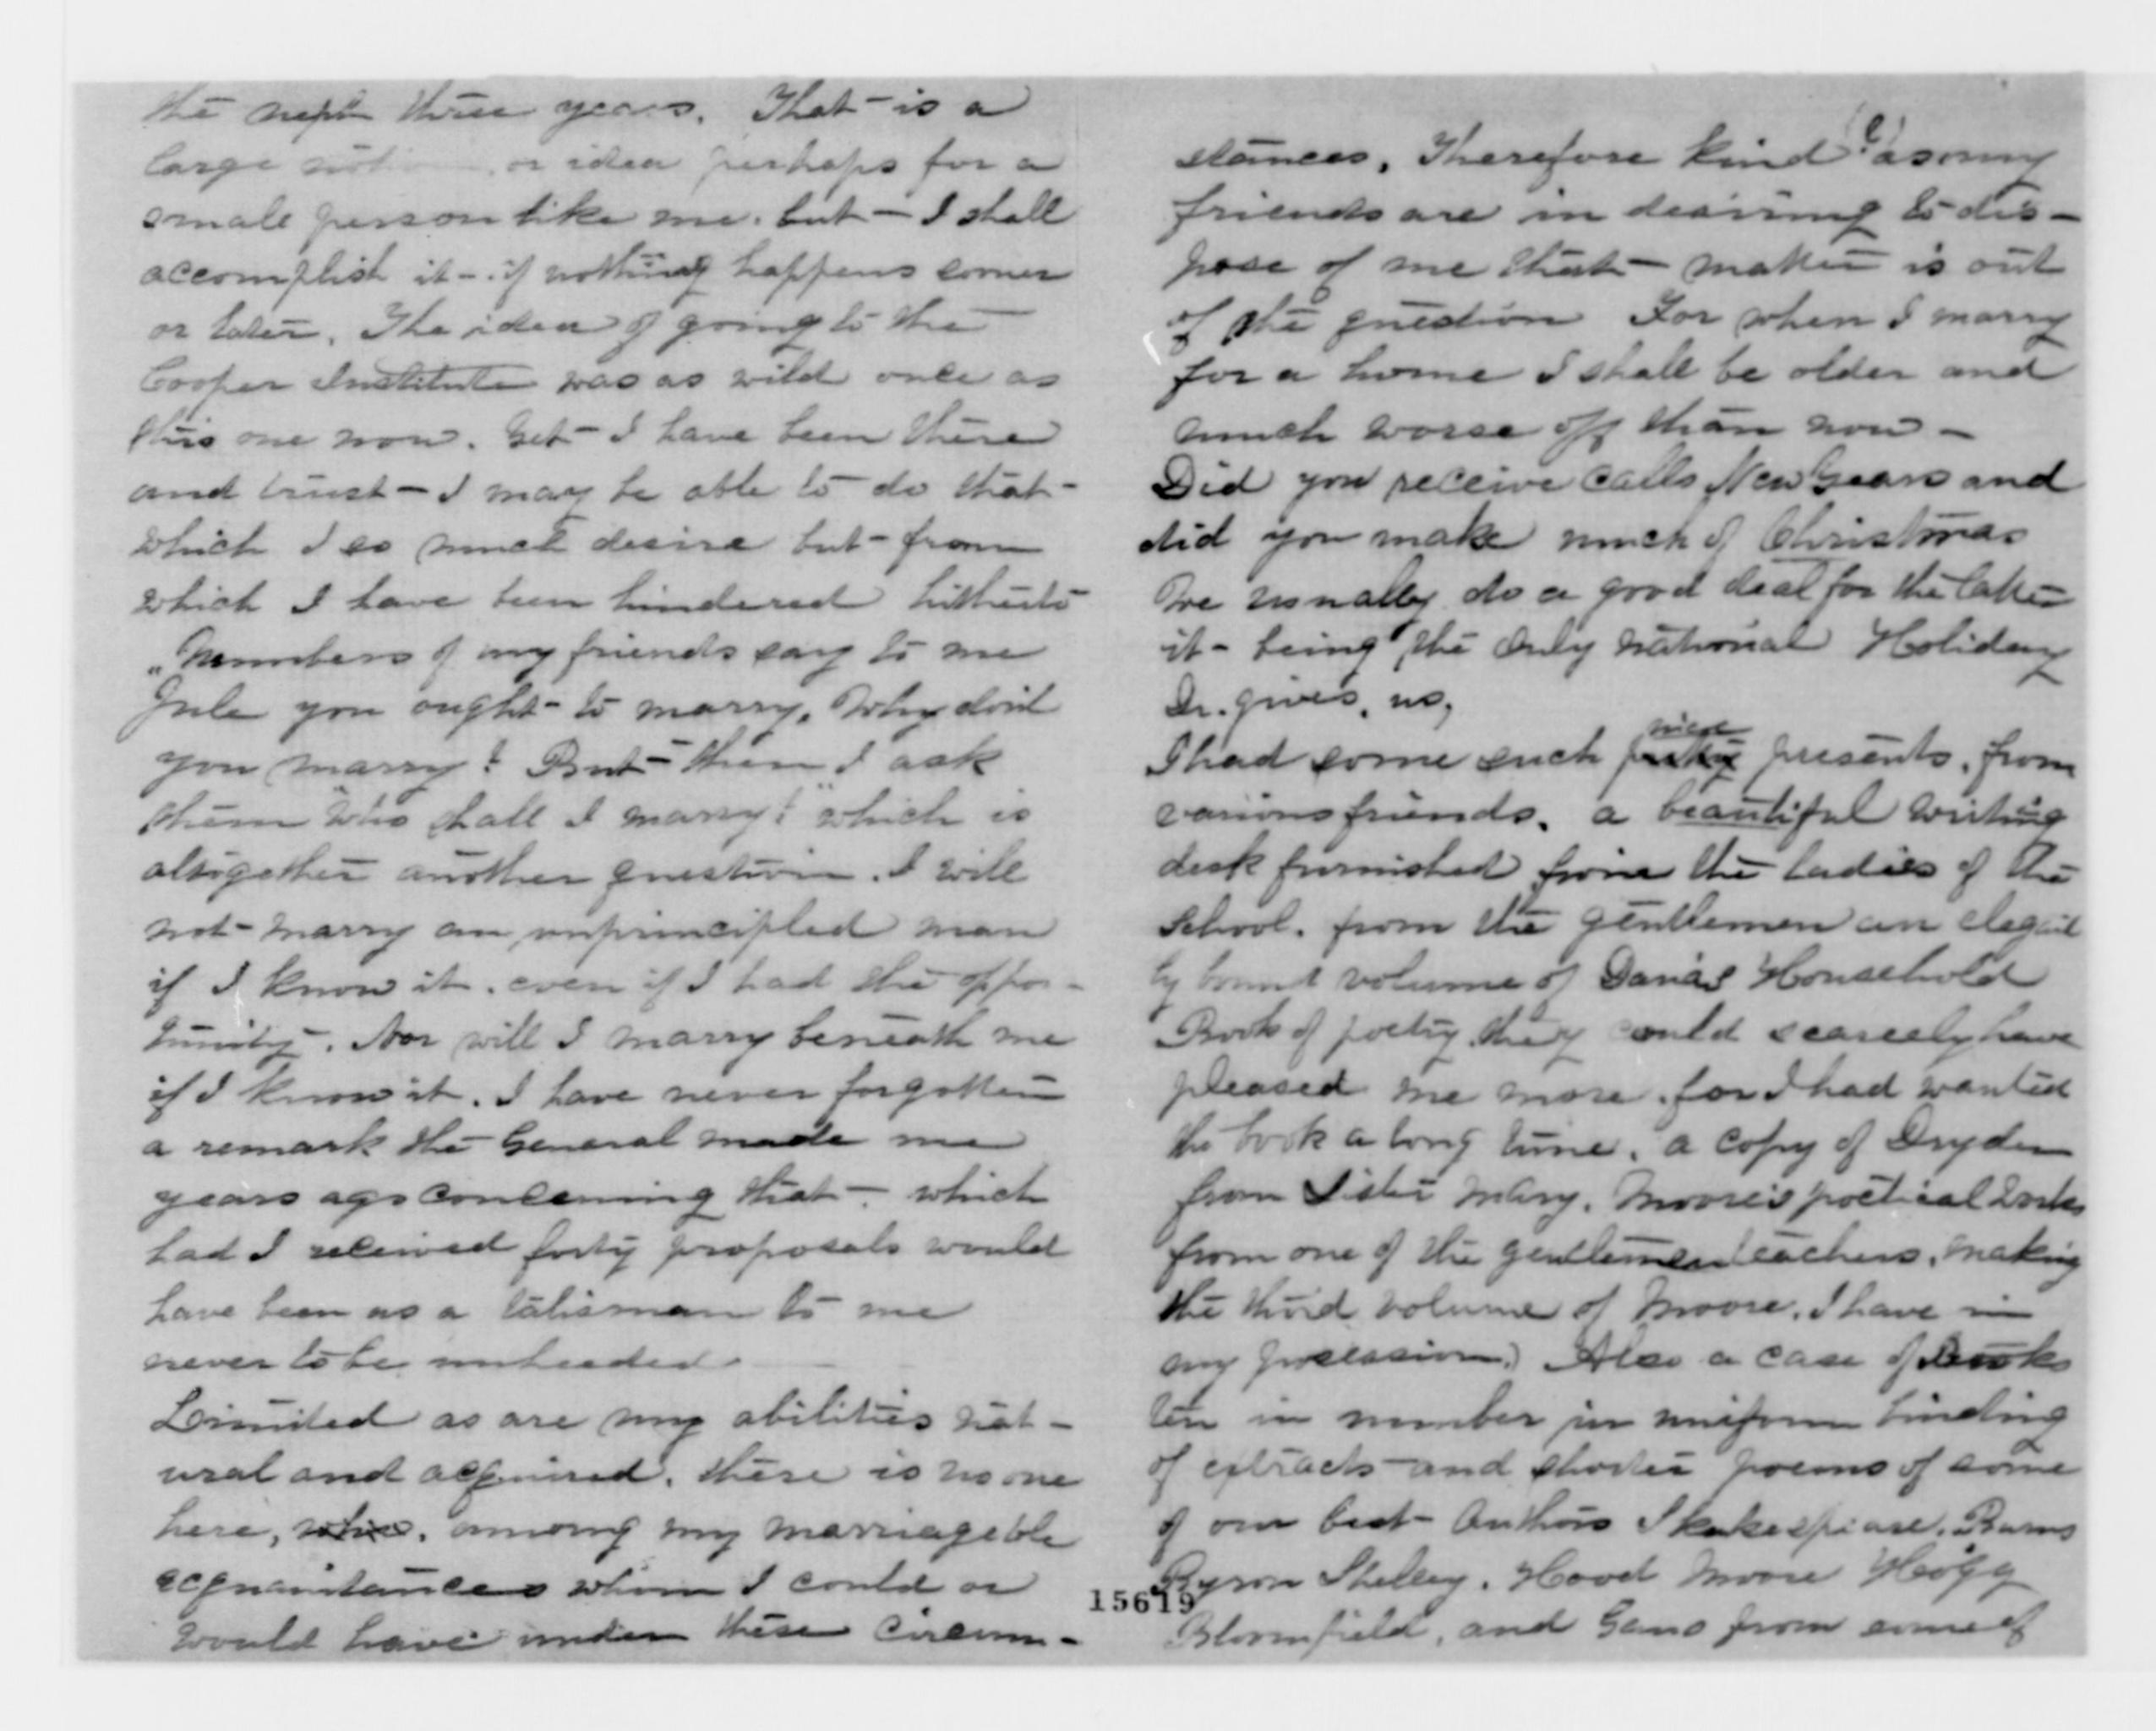 the next three years. That is a
large notion, or idea perhaps for a
small person like me. but I shall
accomplish it if nothing happens sooner
or later. The idea of going to the
Cooper Institute was as wild once as
this one now. Yet I have been there
and trust I may be able to do that
which I so much desire but from
which I have been hindered hitherto
"Numbers of my friends say to me
Jule you ought to marry. Why don't
you marry? But then I ask
them "who shall I marry?" which is
altogether another question. I will
not marry an unprincipled man
if I know it. even if I had the oppor-
tunity. Nor will I marry beneath me
if I know it. I have never forgotten
a remark the General made me
years ago concerning that which
had I received forty proposals would
have been as a talisman to me
never to be unheeded
Limited as are my abilities nat-
ural and acquired. there is no one
here, who, among my marriageble
acquaintances whom I could or
would have under these circum-
stances. Therefore kind (?) as my
friends are in desiring to dis-
pose of me that matter is out
of the question For when I marry
for a home I shall be older and
much worse off than now -
Did you receive calls New Years and
did you make much of Christmas
We usually do a good deal for the latter
it being the only national Holiday
Dr. gives us,
I had some such pretty nice presents, from
various friends. a beautiful writing
desk furnished from the ladies of the
School. from the gentlemen an elegant
ly bound volume of Dana's Household
Book of poetry. they could scarcely have
pleased me more. for I had wanted
the book a long time. a copy of Dryden
from Sister Mary. Moore's poetical Works
from one of the gentlemen teachers. making
the third volume of Moore. I have in
my possession.) Also a case of Books
ten in number in uniform binding
of extracts and shorter poems of some
of our best Authors Shakespeare. Burns
Byron Shelley. Hood Moore Hogg
Bloomfield, and Gems from some of
15619